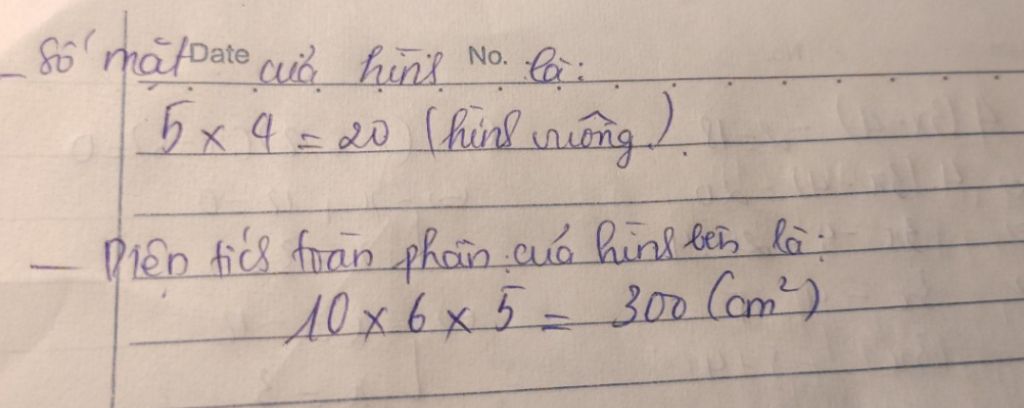 - Số mặt Date của hình No. là:
5 x 4 = 20 (hình vuông).
- Diện tích toàn phần của hình bên là:
10 x 6 x 5 = 300 (cm²)